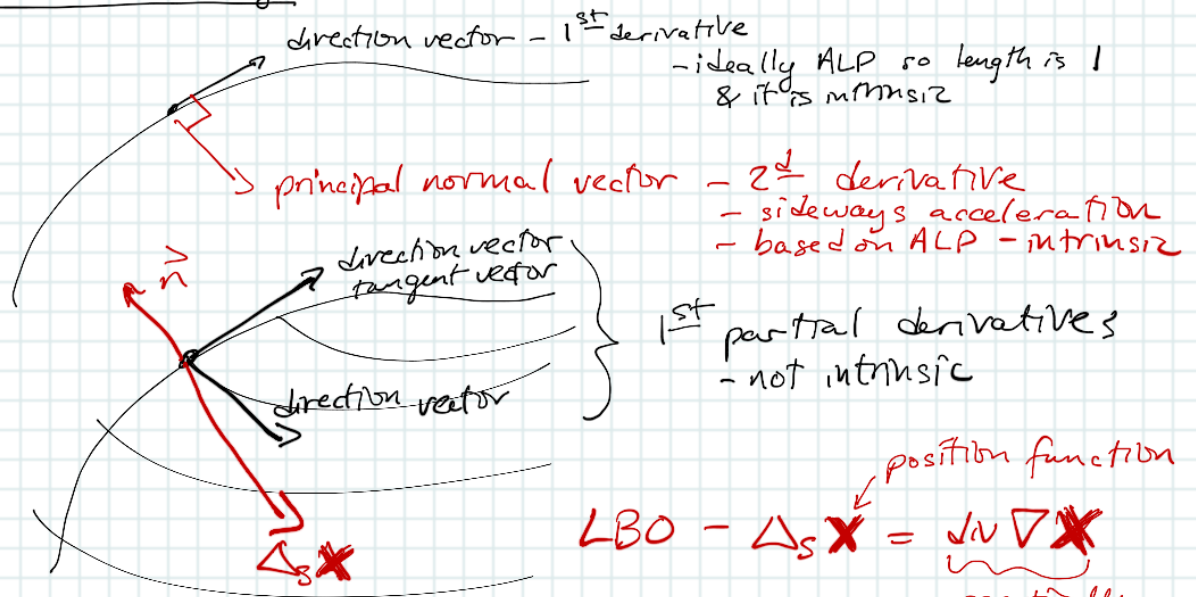 direction vector - 1st derivative
- ideally ALP so length is 1
& it is intrinsic
principal normal vector - 2d derivative
- sideways acceleration
- based on ALP - intrinsic
n
direction vector
tangent vector
1st partial derivatives
- not intrinsic
direction vector
position function
LBO - ΔsX = div ∇X
ΔsX